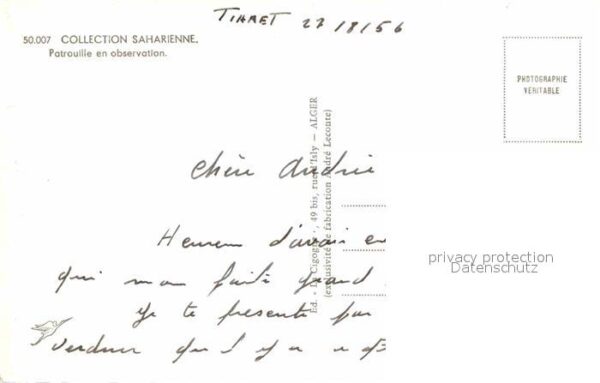 TIARET 27/8/56
50.007 COLLECTION SAHARIENNE.
Patrouille en observation.
PHOTOGRAPHIE
VÉRITABLE
Éd. « La Cigogne », 49 bis, rue d'Isly — ALGER
(exclusivité de fabrication André Leconte)
Chère Andrée
Heureux d'avoir
qui m'on faite grand
Je te presente par
verdure qu'il y a
privacy protection
Datenschutz